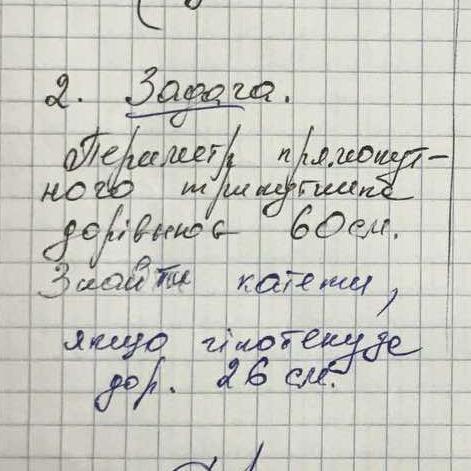 2. Задача.
Периметр прямокут-
ного трикутника
дорівнює 60 см.
Знайти катети,
якщо гіпотенуза
дор. 26 см.